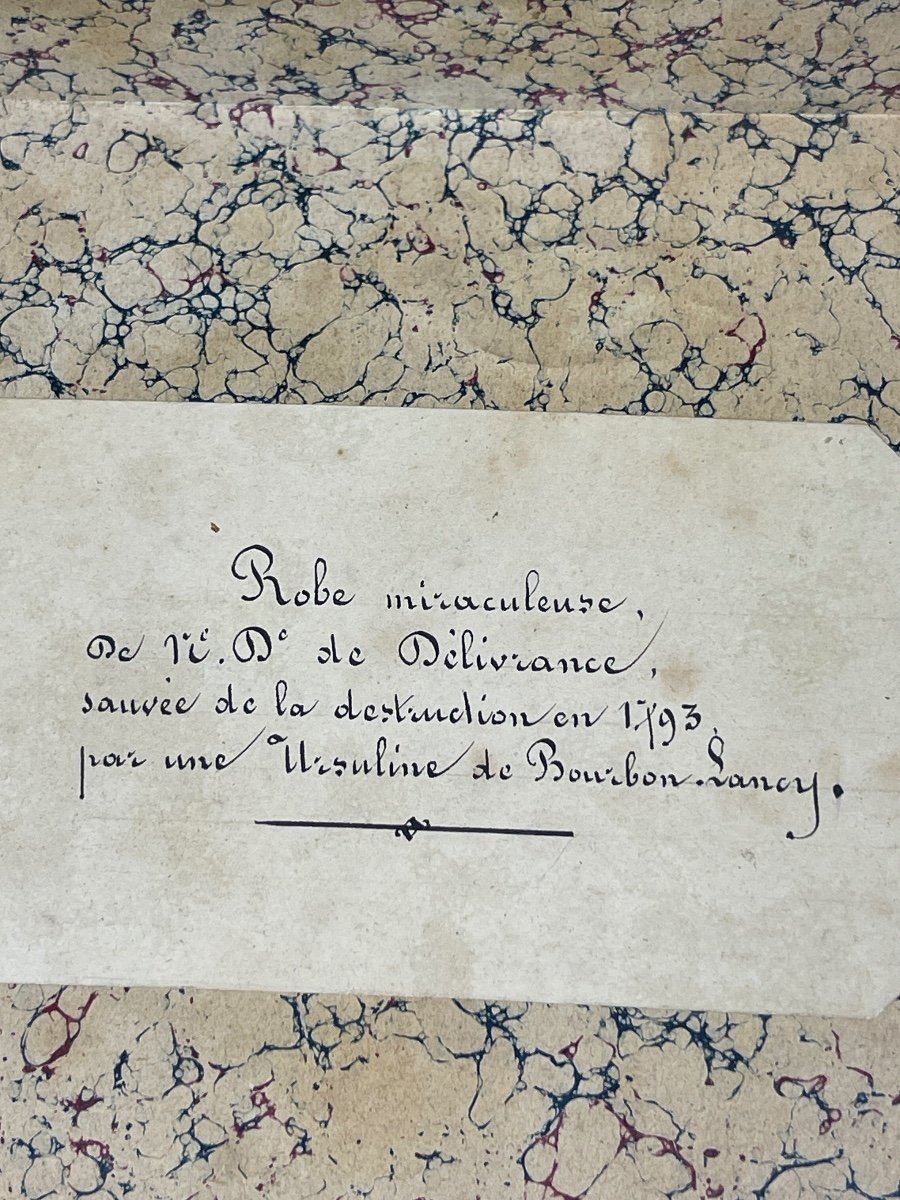 Robe miraculeuse,
De Nᵉ. Dᵉ de Délivrance,
sauvée de la destruction en 1793,
par une Ursuline de Bourbon-Lancy.